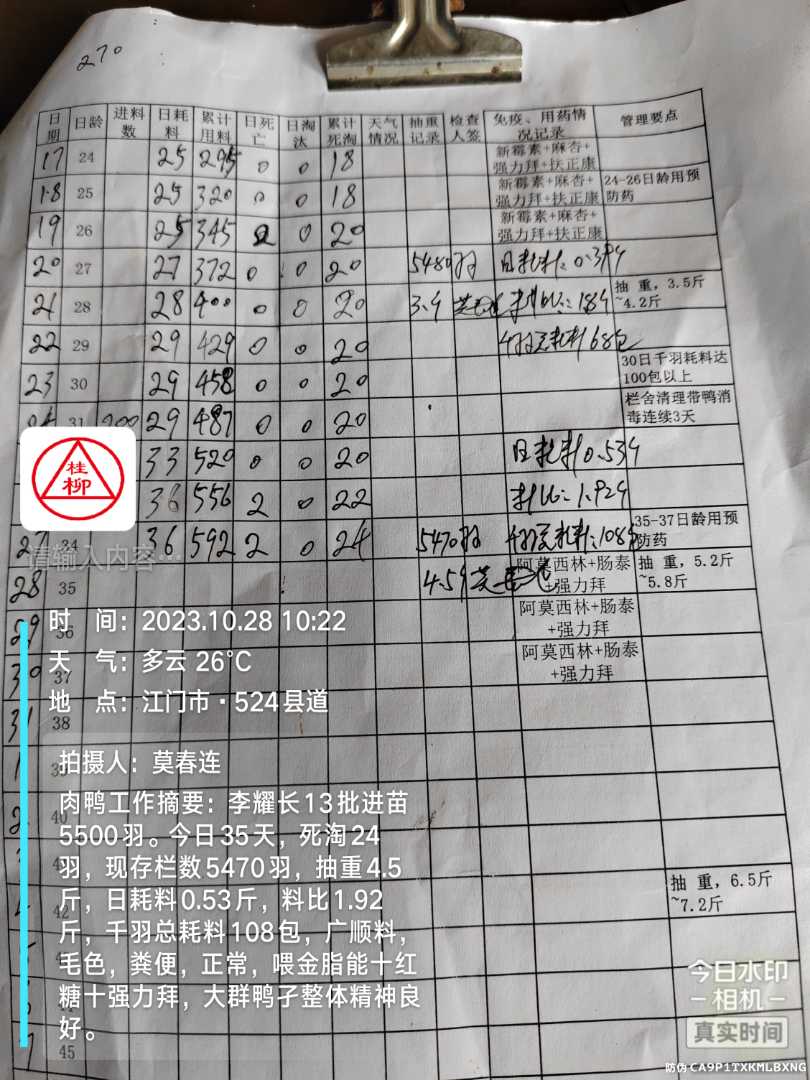 270
日期 日龄 进料数 日耗料 累计用料 日死亡 日淘汰 累计死淘 天气情况 抽重记录 检查人签 免疫、用药情况记录 管理要点
17 24 25 295 0 0 18 新霉素+麻杏+强力拜+扶正康
18 25 25 320 0 0 18 新霉素+麻杏+强力拜+扶正康 24-26日龄用预防药
19 26 25 345 2 0 20 新霉素+麻杏+强力拜+扶正康
20 27 27 372 0 0 20 5480羽 日耗料:0.39斤
21 28 28 400 0 0 20 3.9 料比:1.84 抽重，3.5斤~4.2斤
22 29 29 429 0 0 20 千羽总耗料68包
23 30 29 458 0 0 20 30日千羽耗料达100包以上
31 200 29 487 0 0 20 栏舍清理带鸭消毒连续3天
33 520 0 0 20 日耗料0.53斤
36 556 2 0 22 料比:1.92斤
27 34 36 592 2 0 24 5470羽 千羽总耗料:108包 35-37日龄用预防药
28 35 4.59 阿莫西林+肠泰+强力拜 抽重，5.2斤~5.8斤
29 36 阿莫西林+肠泰+强力拜
30 37 阿莫西林+肠泰+强力拜
31 38
42 抽重，6.5斤~7.2斤
45
桂柳
请输入内容…
时 间：2023.10.28 10:22
天 气：多云 26℃
地 点：江门市·524县道
拍摄人：莫春连
肉鸭工作摘要：李耀长13批进苗
5500羽。今日35天，死淘24
羽，现存栏数5470羽，抽重4.5
斤，日耗料0.53斤，料比1.92
斤，千羽总耗料108包，广顺料，
毛色，粪便，正常，喂金脂能十红
糖十强力拜，大群鸭子整体精神良
好。
今日水印
相机
真实时间
防伪 CA9P1TXKMLBXNG